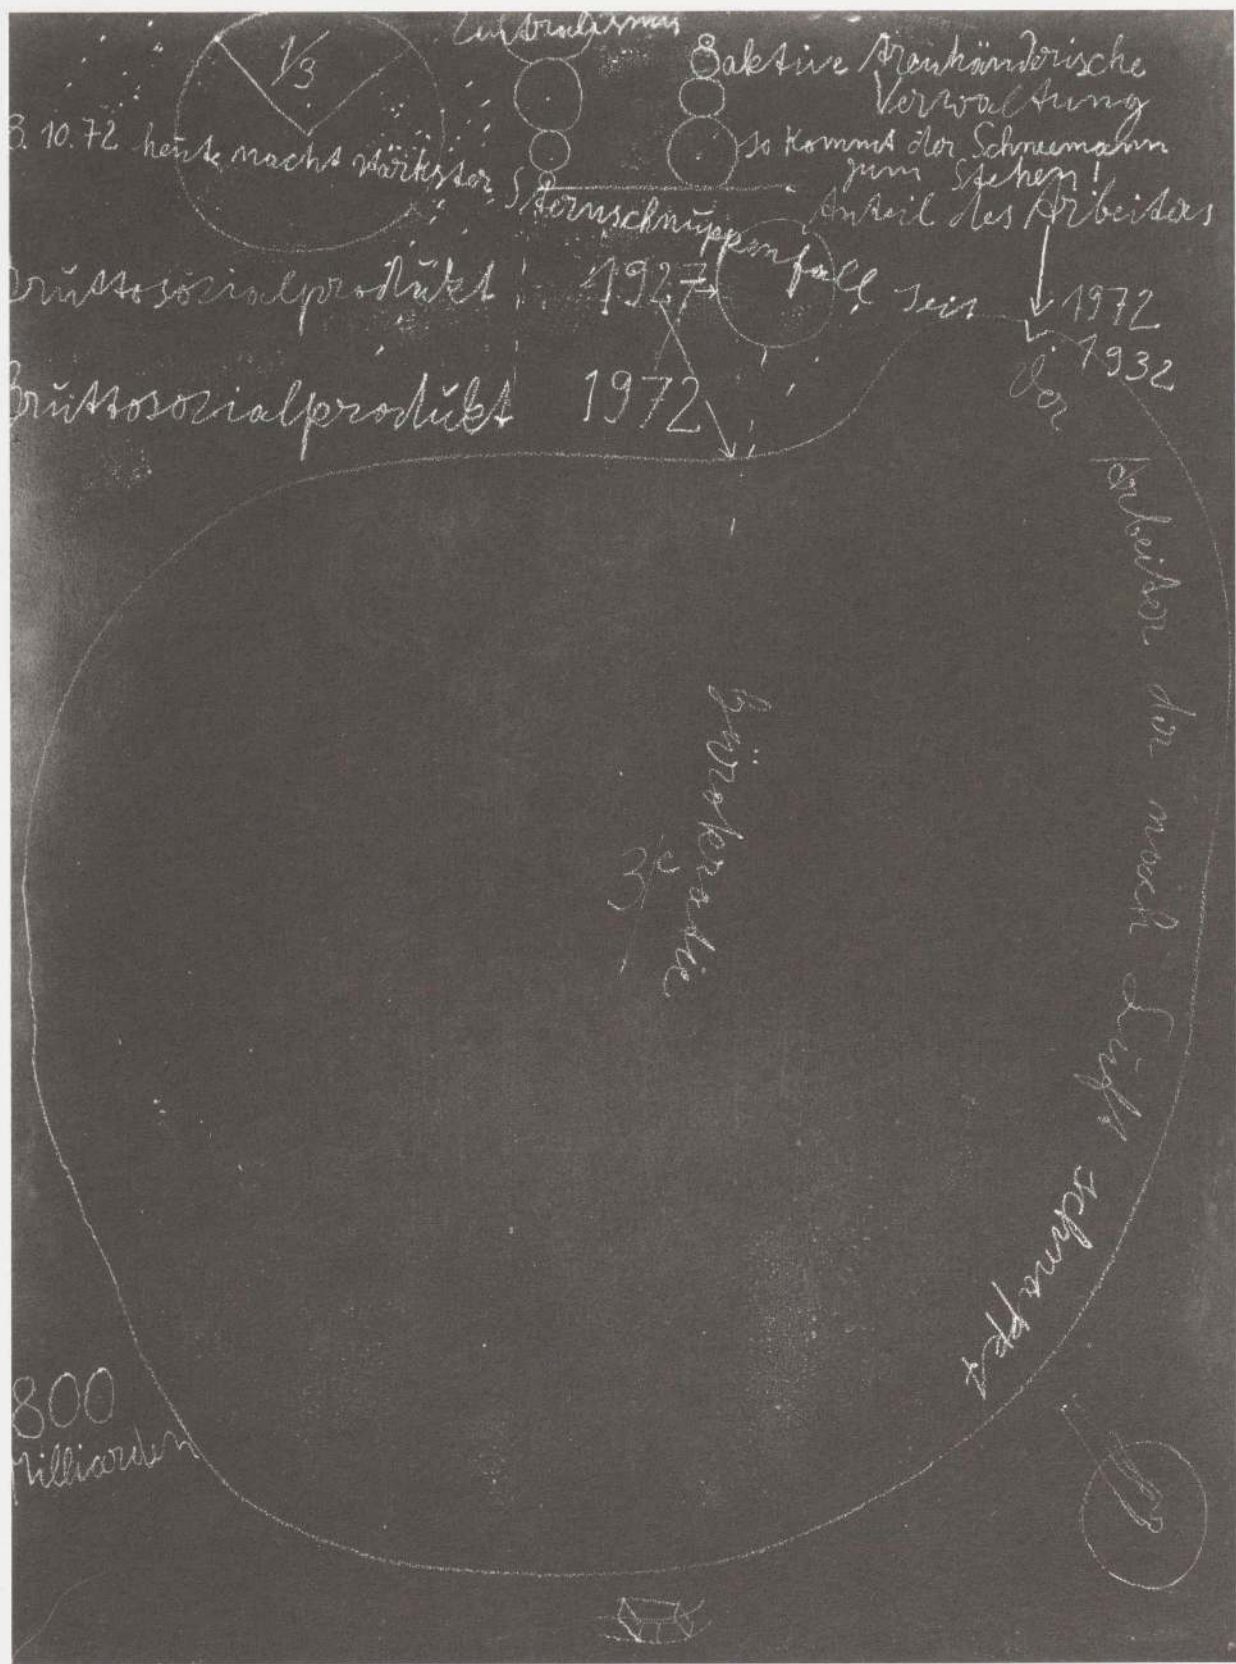 Zentralismus
1/3
8 aktive Treuhänderische
Verwaltung
8.10.72 heute nacht stärkster Sternschnuppenfall seit 1932
so kommt der Schneemann
zum Stehen!
Anteil des Arbeiters
1972
Bruttosozialprodukt 1927
Bruttosozialprodukt 1972
Der
Arbeiter der nach Luft schnappt
bürokratie
800
Milliarden